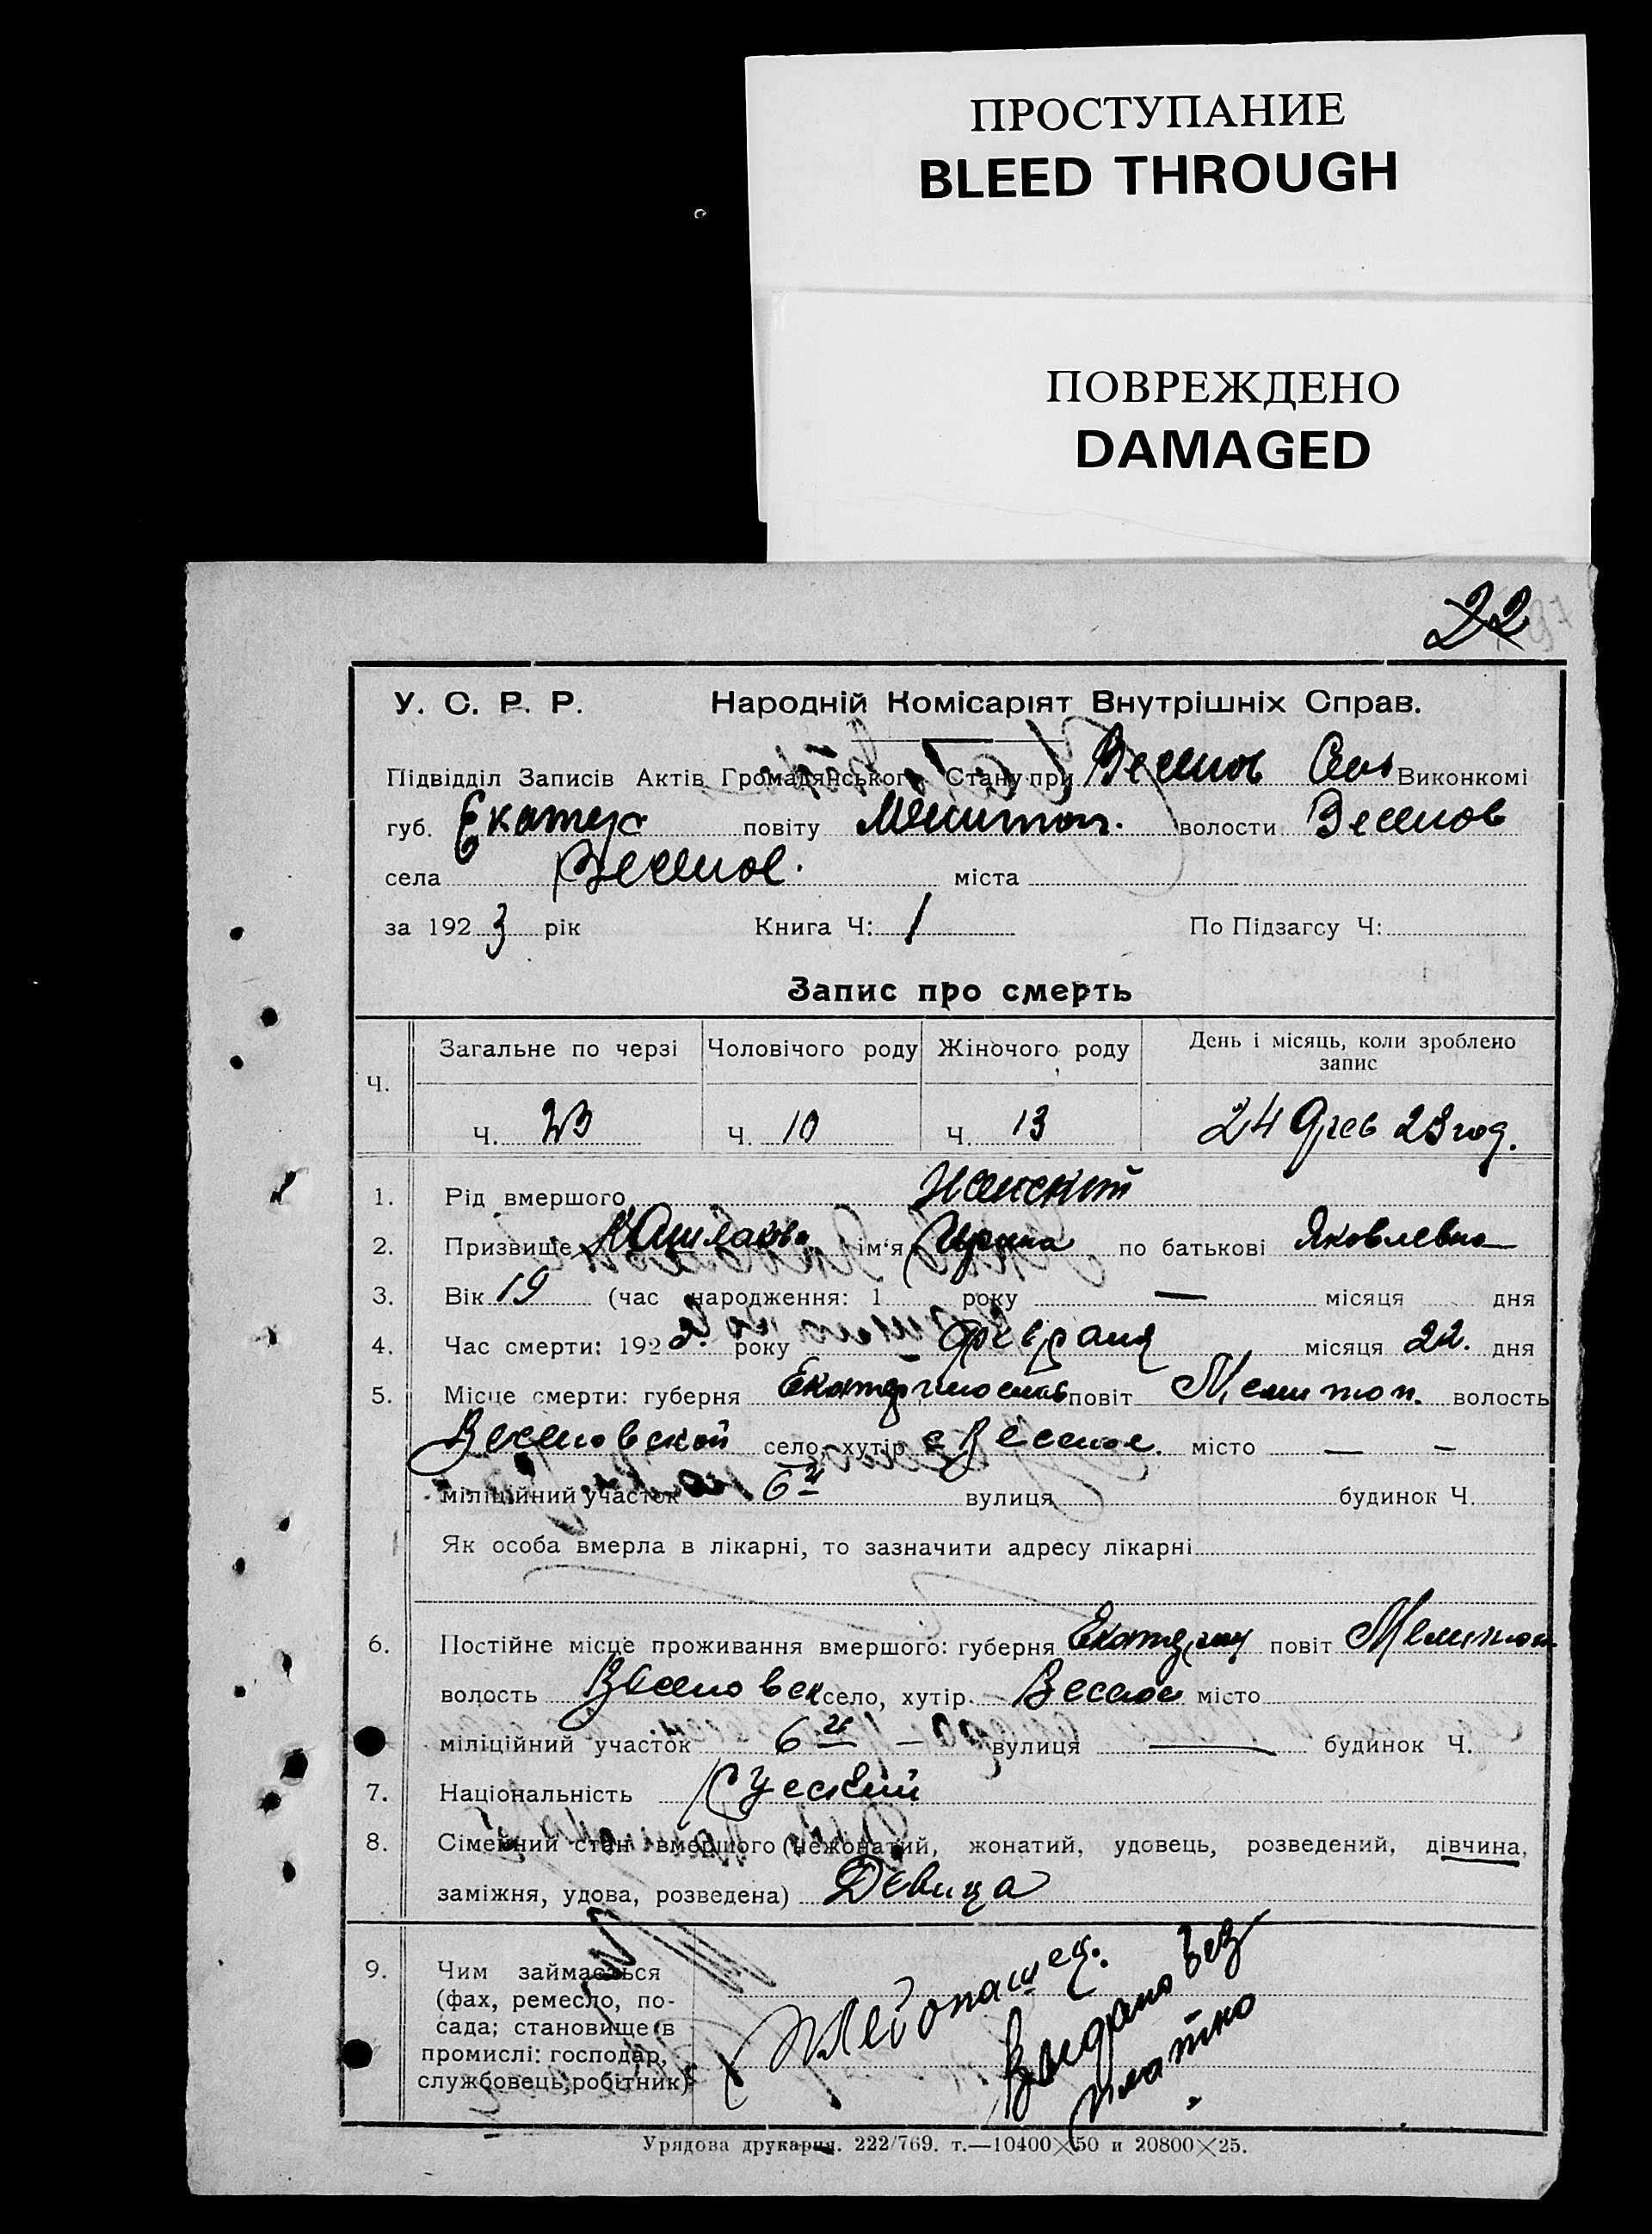 ПРОСТУПАНИЕ
BLEED THROUGH
ПОВРЕЖДЕНО
DAMAGED
22
У. С. Р. Р. Народній Комісаріят Внутрішніх Справ.
Підвідділ Записів Актів Громадянського Стану при Веселов Виконкомі
губ. Екатер повіту Мелитоп. волости Веселов
села Веселое. міста
за 1923 рік Книга Ч: 1 По Підзагсу Ч:
Запис про смерть
Ч. Загальне по черзі Чоловічого роду Жіночого роду День і місяць, коли зроблено запис
Ч. 23 Ч. 10 Ч. 13 24 Фев 23 год.
1. Рід вмершого Женский
2. Призвище ім'я Ирина по батькові Яковлевна
3. Вік 19 (час народження: 1 року — місяця дня
4. Час смерти: 192 року Февраля місяця 22. дня
5. Місце смерти: губерня Екатеринослав повіт Мелитоп. волость
Веселовской село, хутір с Веселое. місто — —
міліційний участок 6й вулиця будинок Ч.
Як особа вмерла в лікарні, то зазначити адресу лікарні
6. Постійне місце проживання вмершого: губерня Екатерин повіт Мелитоп
волость Веселовск село, хутір Веселое місто
міліційний участок 6й — вулиця — будинок Ч.
7. Національність Русский
8. Сімейний стан вмершого (нежонатий, жонатий, удовець, розведений, дівчина,
заміжня, удова, розведена) Девица
9. Чим займається
(фах, ремесло, по-
сада; становище в
промислі: господар,
службовець, робітник)
Хлебопашец.
Выдано без
платно
Урядова друкарня. 222/769. т.—10400×50 и 20800×25.